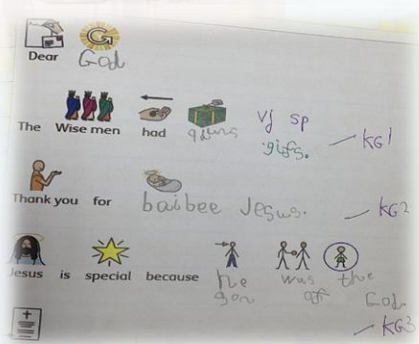 Dear God
The Wise men had vj sp
gifs. KG1
Thank you for baibee Jesus. KG2
Jesus is special because he was the
son of God
KG3